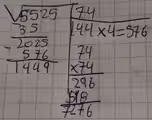 √5525 | 74
35 | 144 × 4 = 576
2025 | 74
- 576 | × 74
1449 | 296
518
7276